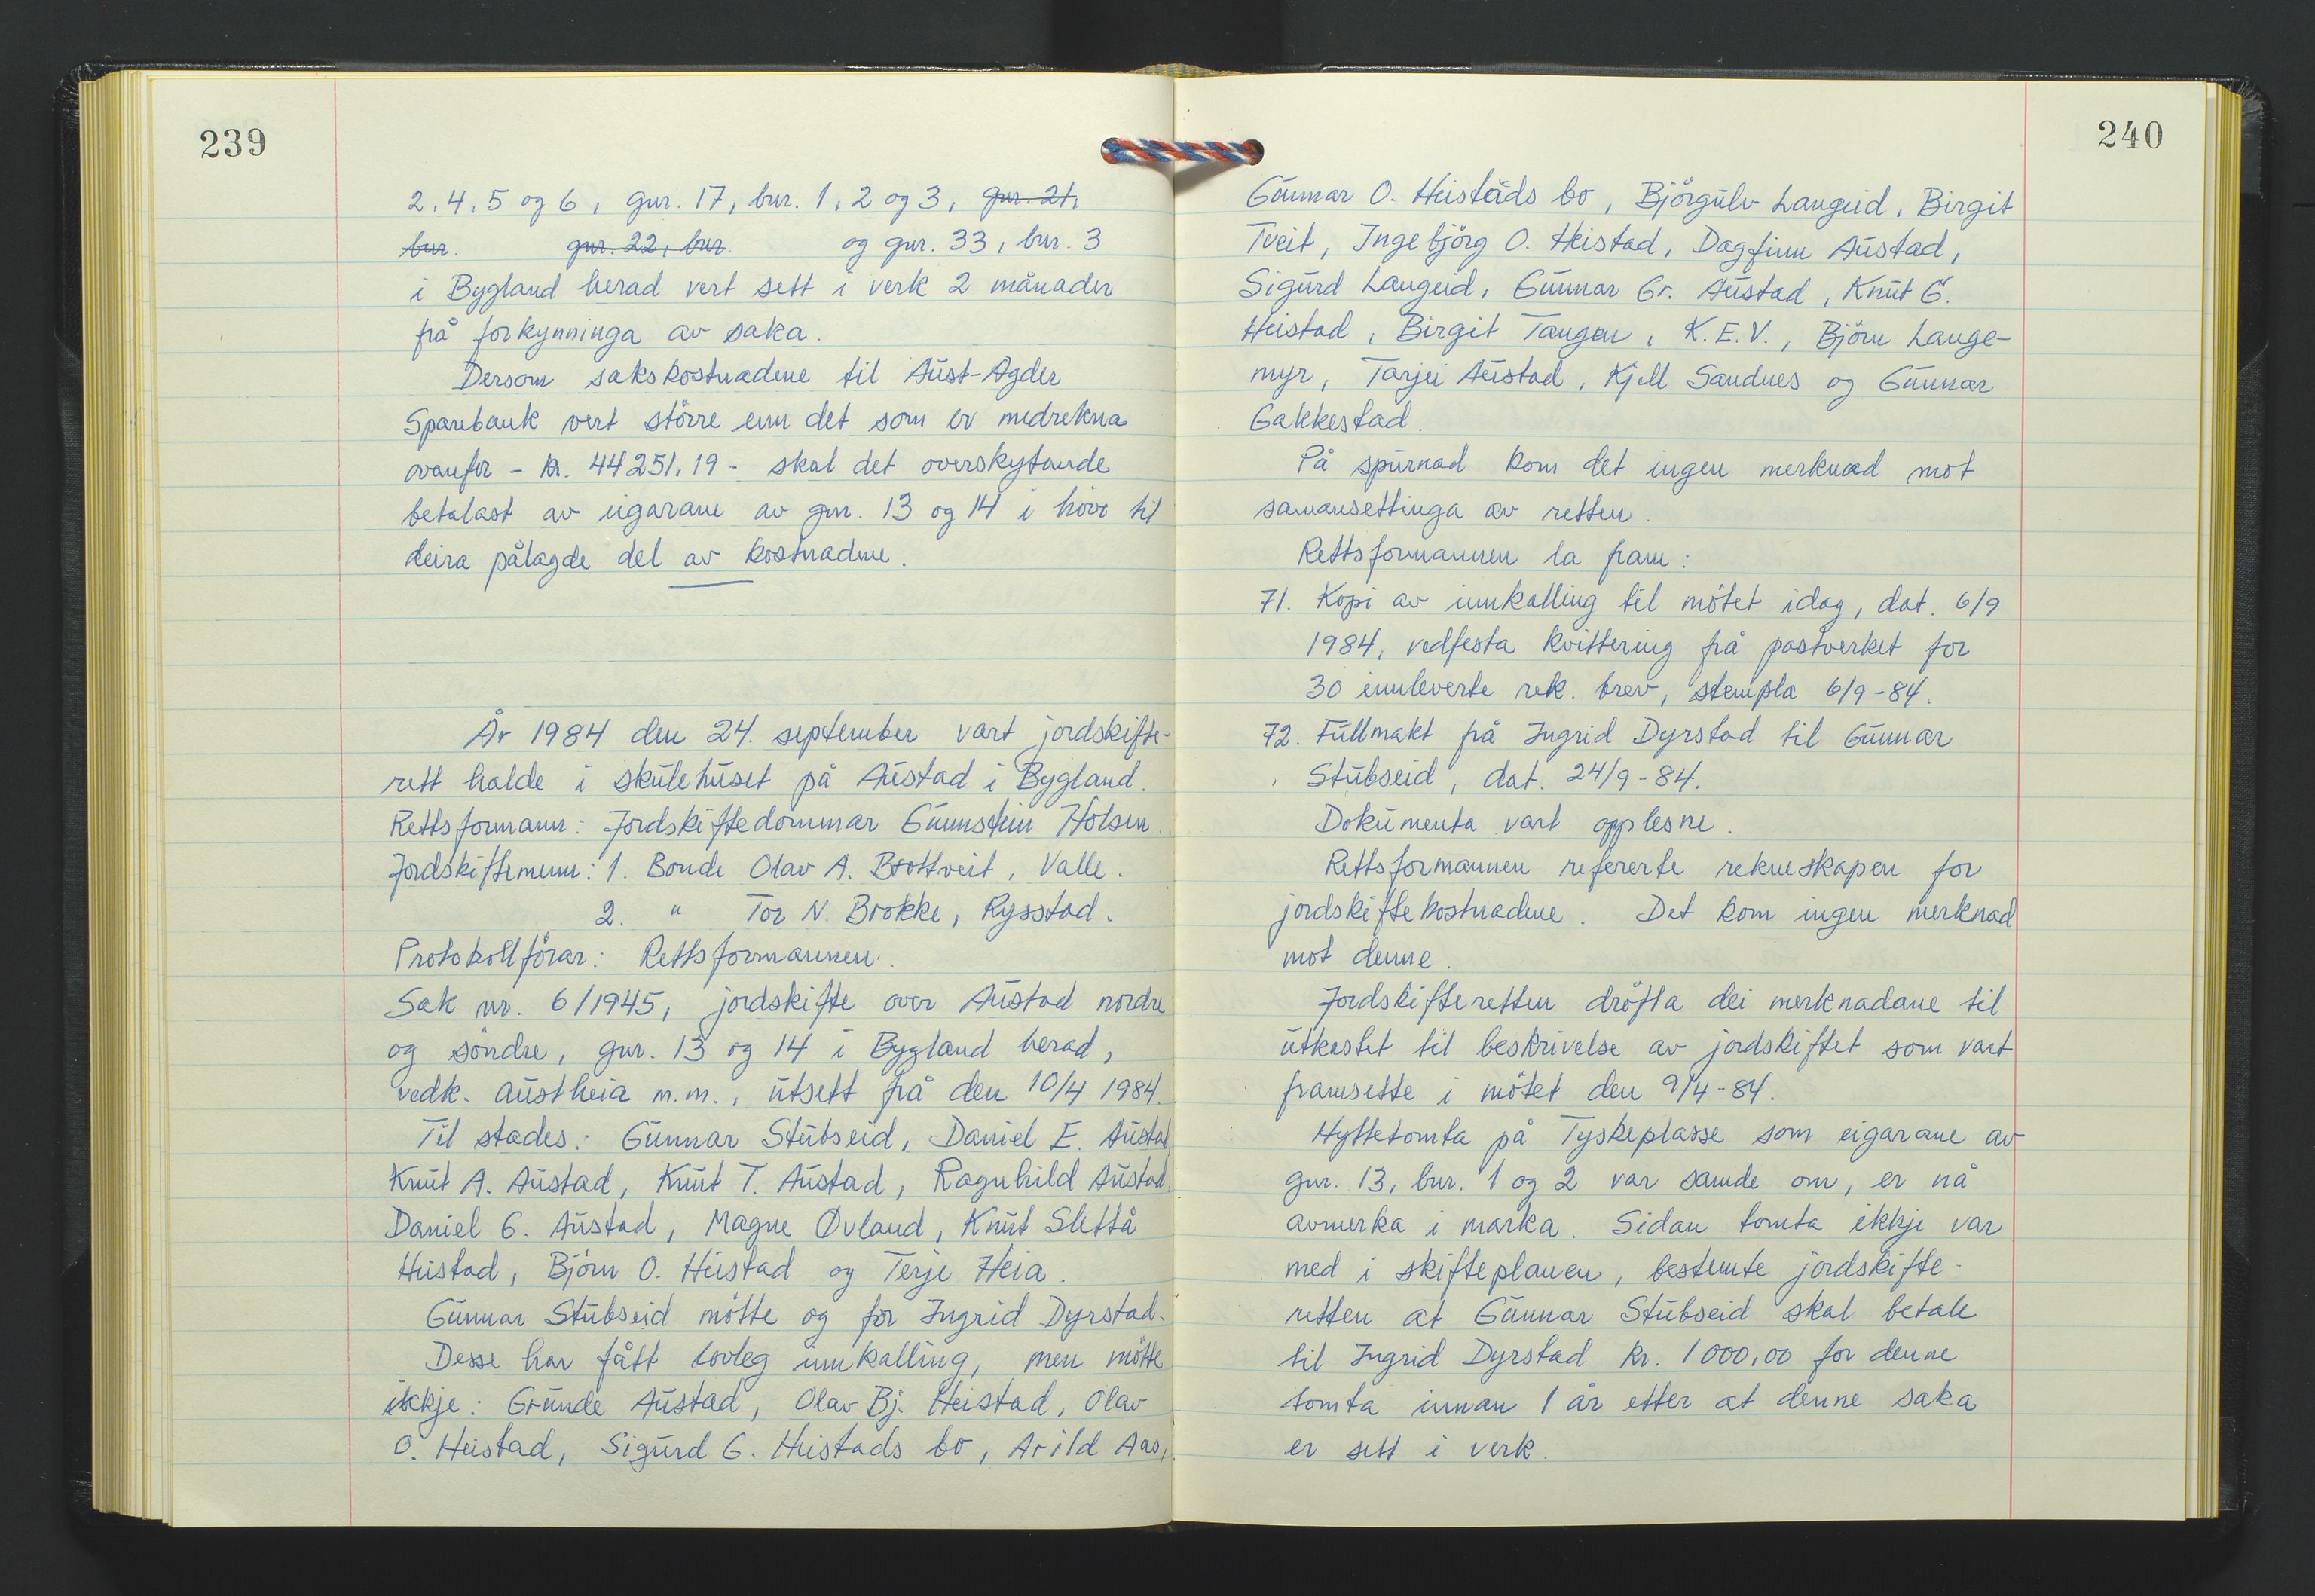 239
2, 4, 5 og 6, gnr. 17, bnr. 1, 2 og 3, gnr. 21,
bnr. gnr. 22, bnr. og gnr. 33, bnr. 3
i Bygland herad vert sett i verk 2 månader
frå forkynninga av saka.
Dersom sakskostnadene til Aust-Agder
Sparebank vert större enn det som er medrekna
ovanfor - kr. 44251,19 - skal det overskytande
betalast av eigarane av gnr. 13 og 14 i høve til
deira pålagde del av kostnadene.
År 1984 den 24. september vart jordskifte-
rett halde i skulehuset på Austad i Bygland.
Rettsformann: Jordskiftedommar Gunnstein Holsen.
Jordskiftemenn: 1. Bonde Olav A. Brottveit, Valle.
2. " Tor N. Brokke, Rysstad.
Protokollförar: Rettsformannen.
Sak nr. 6/1945, jordskifte over Austad nordre
og söndre, gnr. 13 og 14 i Bygland herad,
vedk. austheia m.m., utsett frå den 10/4 1984.
Til stades: Gunnar Stubseid, Daniel E. Austad,
Knut A. Austad, Knut T. Austad, Ragnhild Austad,
Daniel G. Austad, Magne Øvland, Knut Slettå
Heistad, Björn O. Heistad og Terje Heia.
Gunnar Stubseid mötte og for Ingrid Dyrstad.
Desse har fått lovleg innkalling, men mötte
ikkje: Grunde Austad, Olav Bj. Heistad, Olav
O. Heistad, Sigurd G. Heistads bo, Arild Aas,
240
Gunnar O. Heistads bo, Björgulv Langeid, Birgit
Tveit, Ingebjörg O. Heistad, Dagfinn Austad,
Sigurd Langeid, Gunnar Gr. Austad, Knut G.
Heistad, Birgit Tangen, K.E.V., Björn Lange-
myr, Tarjei Austad, Kjell Sandnes og Gunnar
Gakkestad.
På spurnad kom det ingen merknad mot
samansettinga av retten.
Rettsformannen la fram:
71. Kopi av innkalling til mötet idag, dat. 6/9
1984, vedfesta kvittering frå postverket for
30 innleverte rek. brev, stempla 6/9-84.
72. Fullmakt frå Ingrid Dyrstad til Gunnar
Stubseid, dat. 24/9-84.
Dokumenta vart opplesne.
Rettsformannen refererte rekneskapen for
jordskiftekostnadene. Det kom ingen merknad
mot denne.
Jordskifteretten dröfta dei merknadane til
utkastet til beskrivelse av jordskiftet som vart
framsette i mötet den 9/4-84.
Hyttetomta på Tyskeplasse som eigarane av
gnr. 13, bnr. 1 og 2 var samde om, er nå
avmerka i marka. Sidan tomta ikkje var
med i skifteplanen, bestemte jordskifte-
retten at Gunnar Stubseid skal betale
til Ingrid Dyrstad kr. 1000,00 for denne
tomta innan 1 år etter at denne saka
er sett i verk.